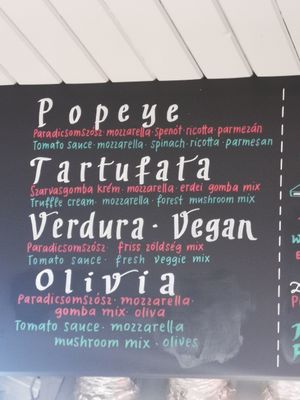 Popeye
Paradicsomszósz · mozzarella · spenót · ricotta · parmezán
Tomato sauce · mozzarella · spinach · ricotta · parmesan
Tartufata
Szarvasgomba krém · mozzarella · erdei gomba mix
Truffle cream · mozzarella · forest mushroom mix
Verdura · Vegan
Paradicsomszósz · friss zöldség mix
Tomato sauce · fresh veggie mix
Olivia
Paradicsomszósz · mozzarella ·
gomba mix · oliva
Tomato sauce · mozzarella
mushroom mix · olives